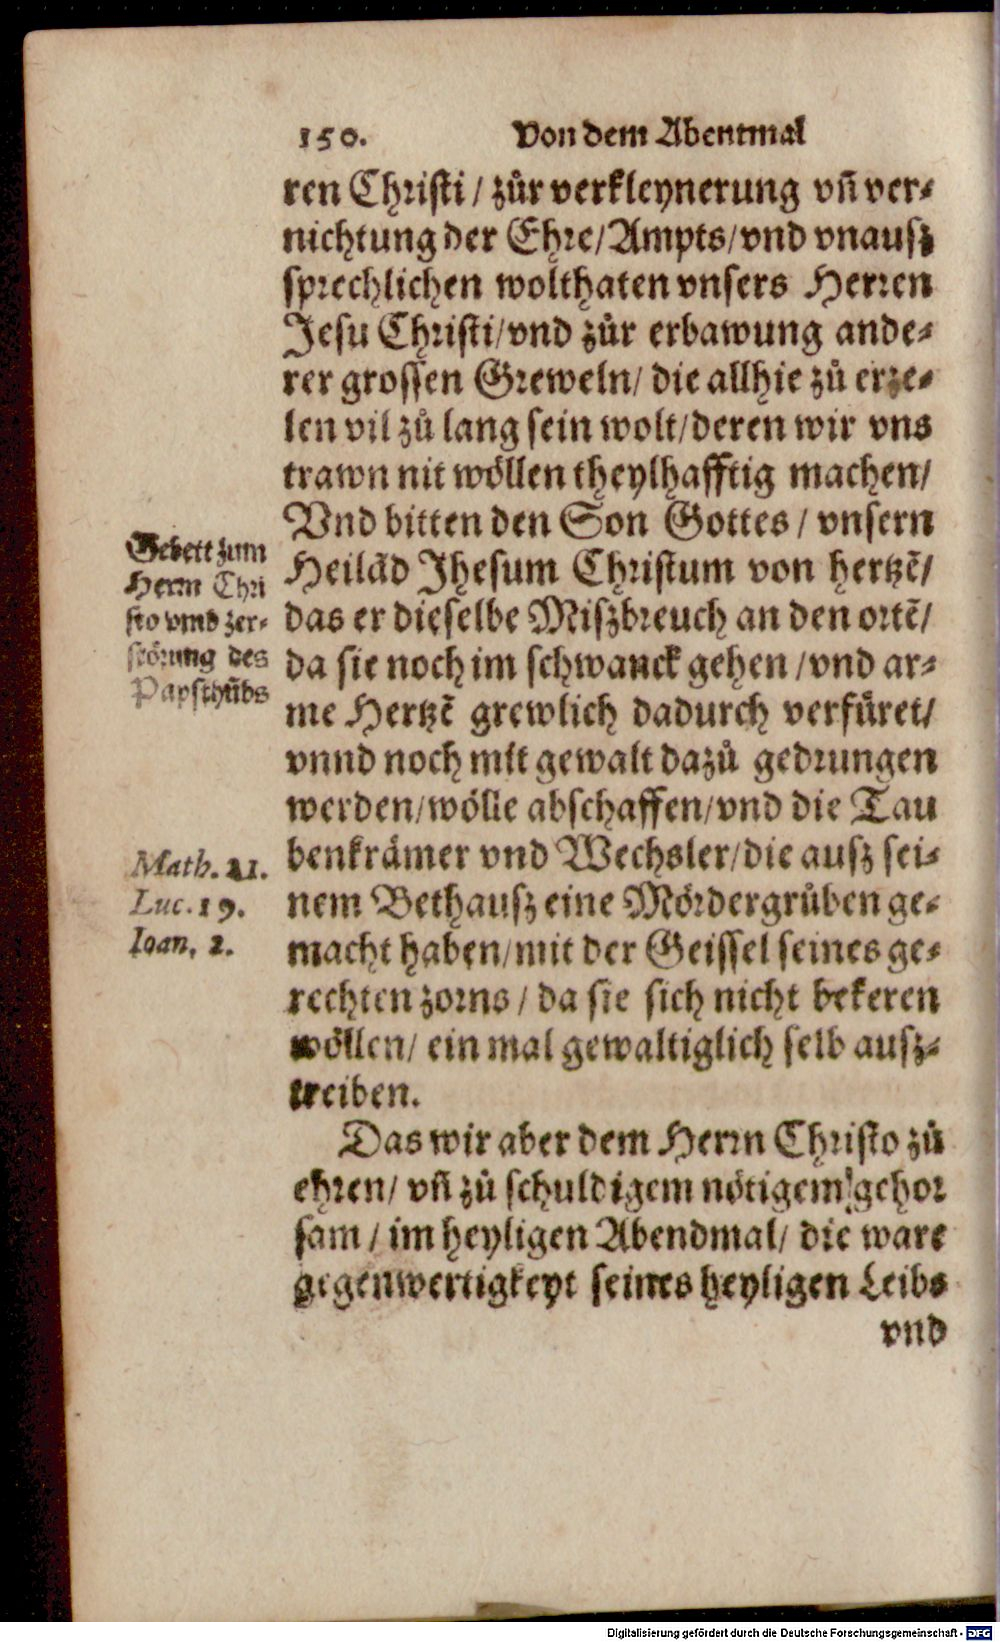 150. Von dem Abentmal
ren Christi / zůr verkleynerung vñ ver-
nichtung der Ehre/Ampts/vnd vnausz
sprechlichen wolthaten vnsers Herren
Jesu Christi/vnd zůr erbawung ande-
rer grossen Greweln/ die allhie zů erze-
len vil zů lang sein wolt/deren wir vns
trawn nit wöllen theylhafftig machen/
Vnd bitten den Son Gottes / vnsern
Heilãd Jhesum Christum von hertzẽ/
das er dieselbe Miszbreuch an den ortẽ/
da sie noch im schwanck gehen /vnd ar-
me Hertzẽ grewlich dadurch verfůret/
vnnd noch mit gewalt dazů gedrungen
werden/wölle abschaffen/vnd die Tau
benkrämer vnd Wechsler/die ausz sei-
nem Bethausz eine Mördergrůben ge-
macht haben/mit der Geissel seines ge-
rechten zorns / da sie sich nicht bekeren
wöllen/ ein mal gewaltiglich selb ausz-
treiben.
Das wir aber dem Herrn Christo zů
ehren/ vñ zů schuldigem nötigem gehor
sam / im heyligen Abendmal/ die ware
gegenwertigkeyt seines heyligen Leibs
vnd
Gebett zum
Herrn Chri
sto vmb zer-
störung des
Papsthũbs
Math. 21.
Luc. 19.
Ioan. 2.
Digitalisierung gefördert durch die Deutsche Forschungsgemeinschaft - DFG